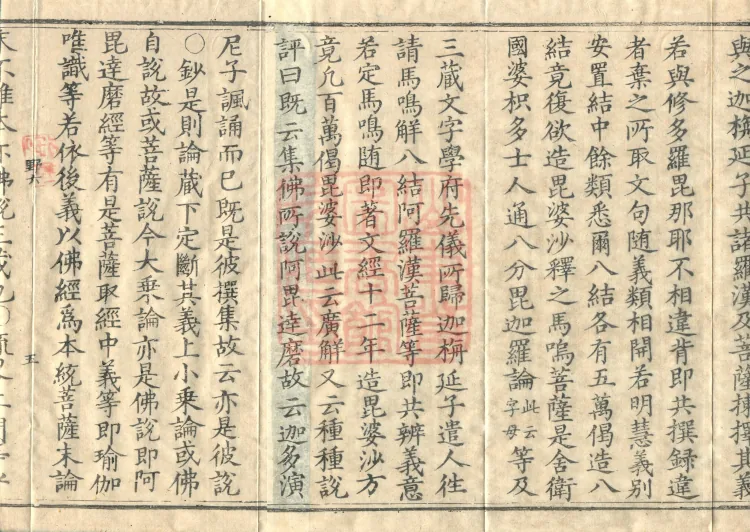 與之迦栴延子共諸羅漢及菩薩揀擇其義
若與修多羅毘那耶不相違背即共撰録違
者棄之所取文句随義類相開若明慧義別
安置結中餘類悉爾八結各有五萬偈造八
結竟復欲造毘婆沙釋之馬鳴菩薩是舍衛
國婆枳多士人通八分毘迦羅論此云字母等及
三蔵文字學府先儀所歸迦栴延子遣人徃
請馬鳴解八結阿羅漢菩薩等即共辨義意
若定馬鳴随即著文經十二年造毘婆沙方
竟九百萬偈毘婆沙此云廣解又云種種說
評曰既云集佛所說阿毘達磨故云迦多演
尼子諷誦而已既是彼撰集故云亦是彼說
○鈔是則論蔵下定斷其義上小乗論或佛
自說故或菩薩說今大乗論亦是佛說即阿
毘達磨經等有是菩薩取經中義等即瑜伽
唯識等若依後義以佛經爲本統菩薩末論
野六
五